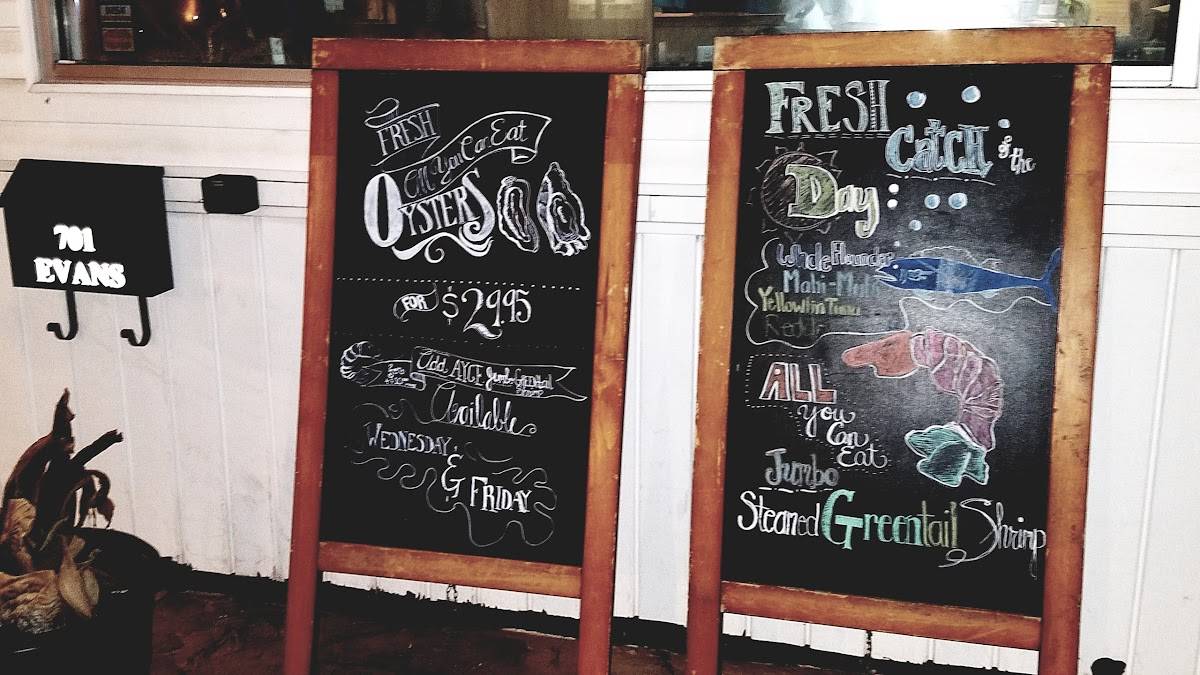 701
EVANS
FRESH
All You Can Eat
OYSTERS
FOR $29.95
Add AYCE Jumbo Greentail
Shrimp
Available
WEDNESDAY
& FRIDAY
FRESH
CatcH of the
Day:
Whole Flounder
Mahi-Mahi
Yellowfin Tuna
ALL
you
Can
Eat
Jumbo
Steamed Greentail Shrimp